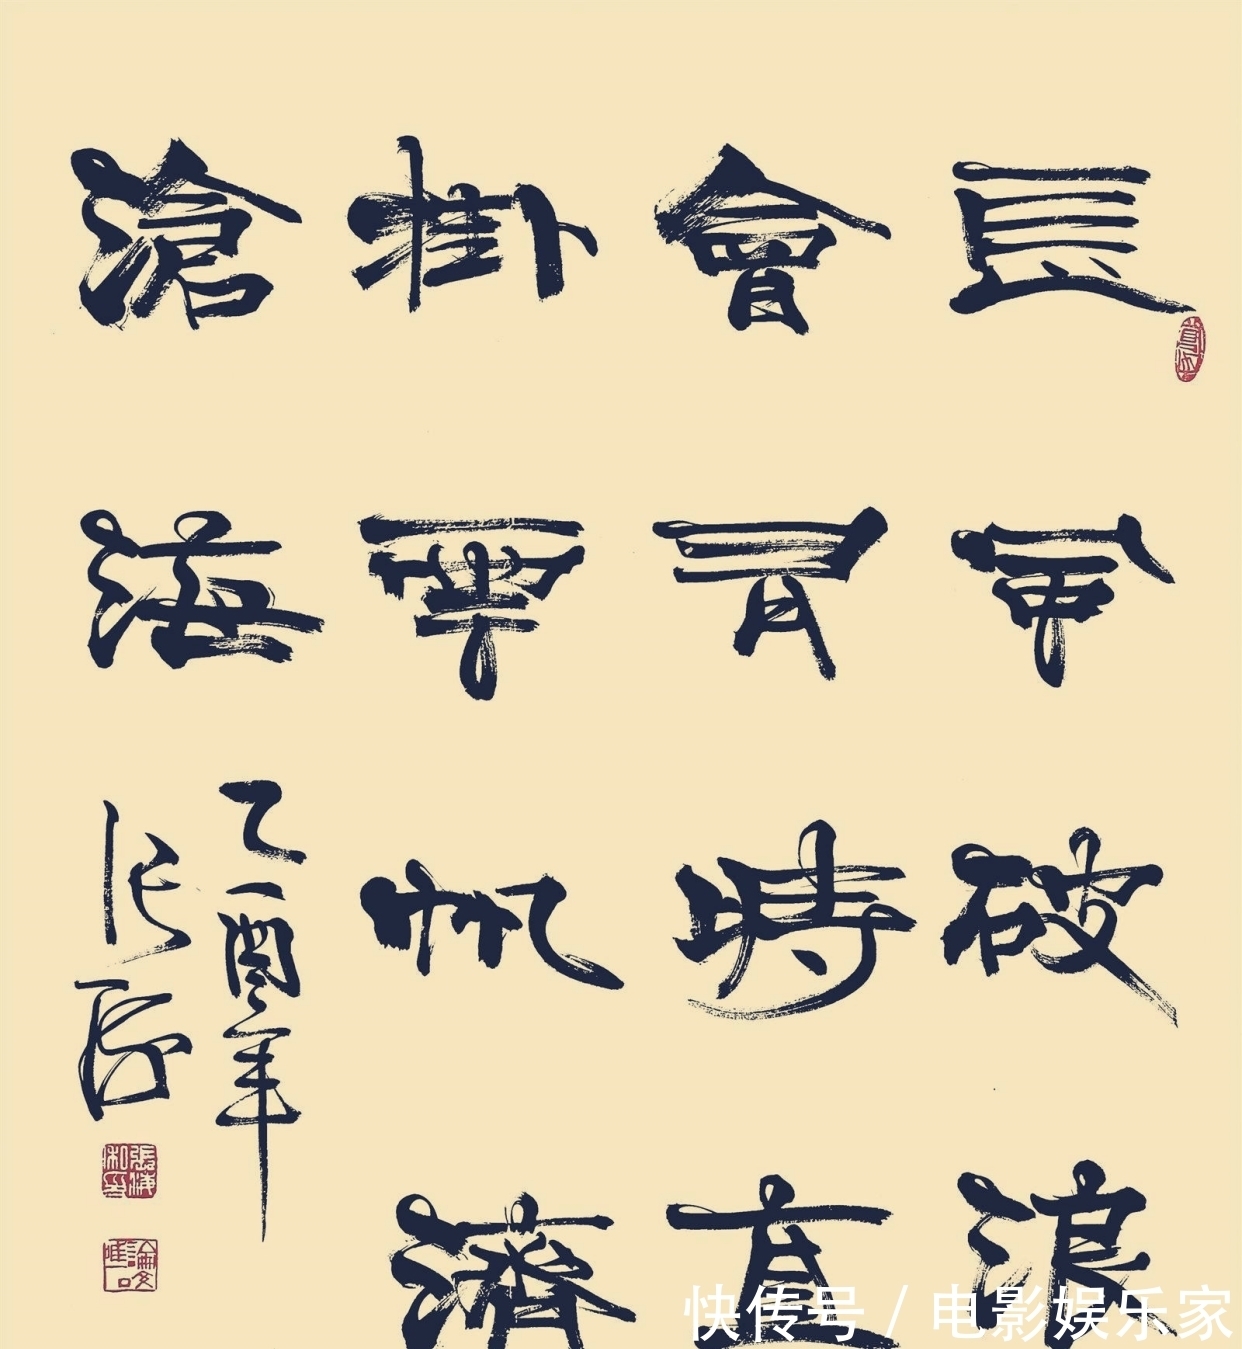 長風破浪
會有時直
掛雲帆濟
滄海
乙酉年
快传号 / 电影娱乐家